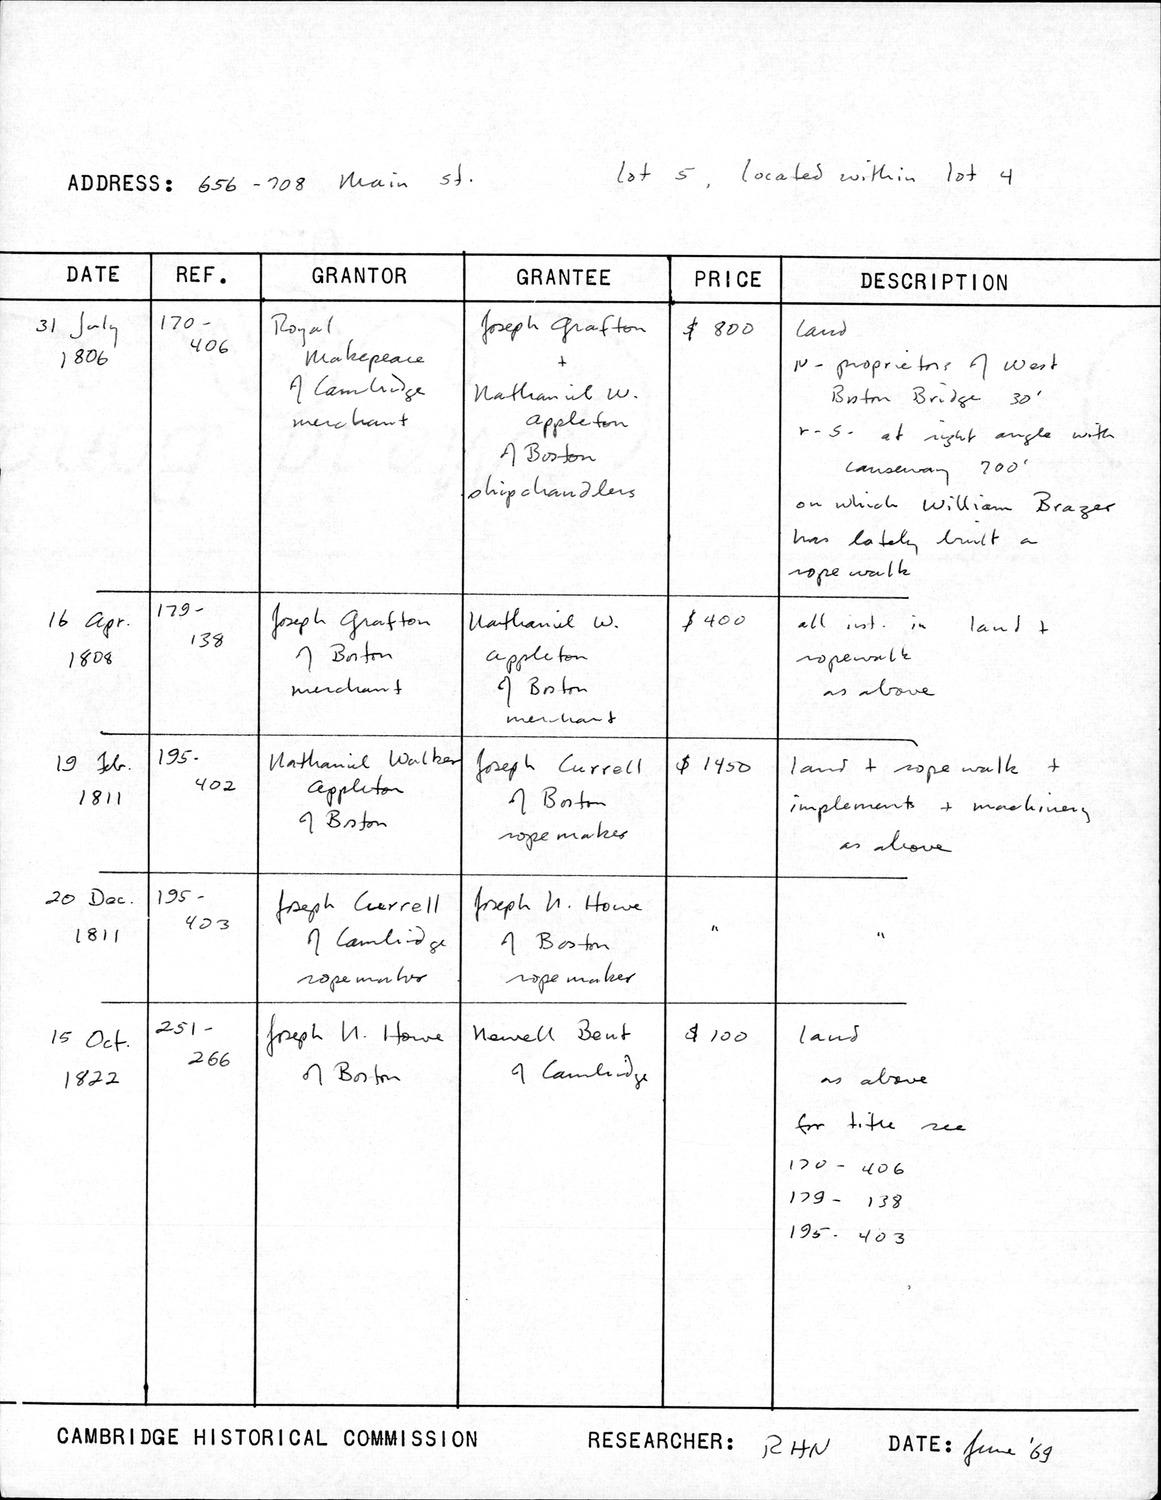 ADDRESS: 656-708 Main St. lot 5, located within lot 4
DATE REF. GRANTOR GRANTEE PRICE DESCRIPTION
31 July
1806
170-
406
Royal
Makepeace
of Cambridge
merchant
Joseph Grafton
+
Nathaniel W.
Appleton
of Boston
shipchandlers
$ 800
land
N- proprietors of West
Boston Bridge 30'
r-s- at right angle with
causeway 700'
on which William Brazer
has lately built a
rope walk
16 Apr.
1808
179-
138
Joseph Grafton
of Boston
merchant
Nathaniel W.
Appleton
of Boston
merchant
$ 400
all int. in land +
ropewalk
as above
19 Feb.
1811
195-
402
Nathaniel Walker
Appleton
of Boston
Joseph Currell
of Boston
ropemaker
$ 1450
land + rope walk +
implements + machinery
as above
20 Dec.
1811
195-
403
Joseph Currell
of Cambridge
ropemaker
Joseph N. Howe
of Boston
ropemaker
"
"
15 Oct.
1822
251-
266
Joseph N. Howe
of Boston
Newell Bent
of Cambridge
$ 100
land
as above
for title see
170-406
179-138
195-403
CAMBRIDGE HISTORICAL COMMISSION RESEARCHER: RHN DATE: June '69